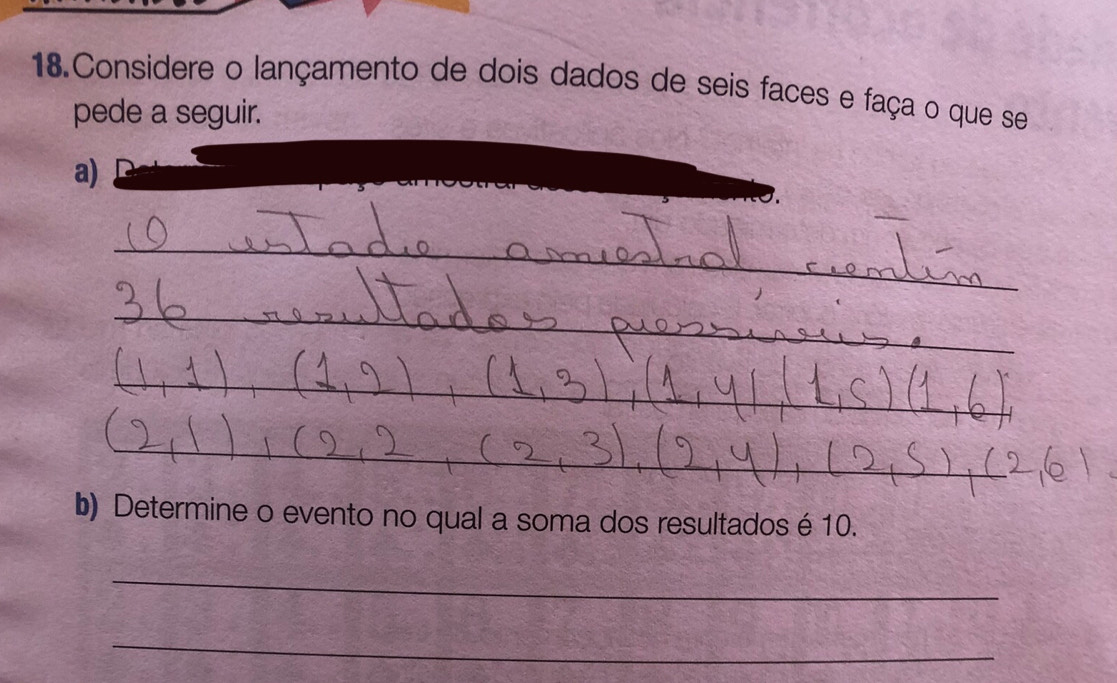 18. Considere o lançamento de dois dados de seis faces e faça o que se
pede a seguir.
a)
O estadio amostral contém
36 resultados possíveis.
(1,1), (1,2), (1,3), (1,4), (1,5) (1,6),
(2,1), (2,2, (2,3), (2,4), (2,5), (2,6).
b) Determine o evento no qual a soma dos resultados é 10.